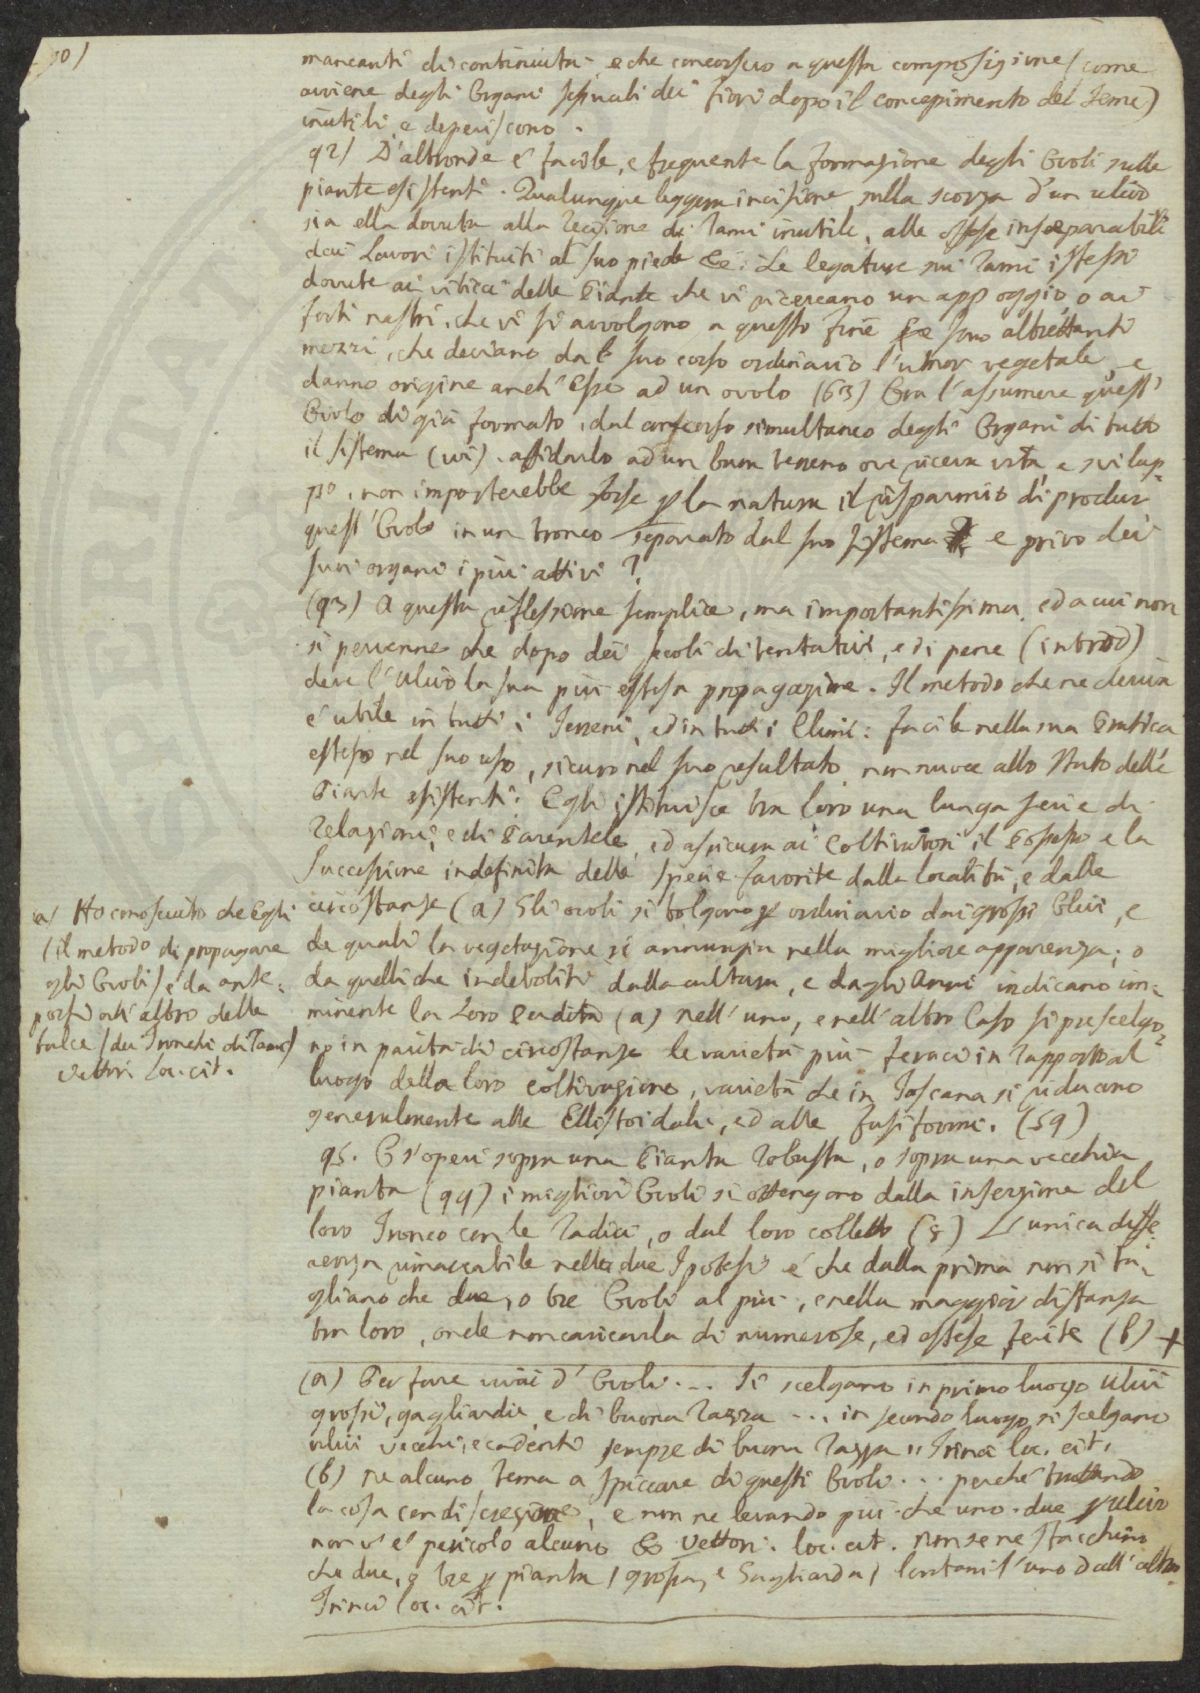 mancanti di continuità, e che concorsero a questa composizione (come
avviene degli Organi sessuali dei fiori dopo il concepimento del seme)
inutili e deperiscono.
92) D'altronde é facile, e frequente la formazione degli Ovoli sulle
piante esistenti. Qualunque leggera incisione sulla scorza d'un ulivo
sia ella dovuta alla recisione di rami inutili, alle offese inseparabili
dai Lavori istituiti al suo piede &c: Le legature sui rami istessi
dovute ai viticci delle Piante che vi ricercano un appoggio, o ai
forti nastri, che vi si avvolgono a questo fine &c sono altrettanti
mezzi, che deviano dal suo corso ordinario l'umor vegetale, e
danno origine anch'essi ad un ovolo (63) Ora l'assumere quest'
Ovolo di già formato, dal concorso simultaneo degli Organi di tutto
il sistema (ivi). affidarlo ad un buon terreno ove riceva vita e svilup-
po, non importerebbe forse p la natura il risparmio di produr
quest'Ovolo in un tronco separato dal suo sistema e privo dei
suoi organi i più attivi?
(93) A questa riflessione semplice, ma importantissima, ed a cui non
si pervenne che dopo dei secoli di tentativi, e di pene (introd)
deve l'ulivo la sua più estesa propagazione. Il metodo che ne deriva
é utile in tutti i Terreni, ed in tutti i Climi: facile nella sua Pratica
esteso nel suo uso, sicuro nel suo resultato non nuoce allo Stato delle
Piante esistenti: Egli istituisce tra loro una lunga serie di
relazioni, e di Parentele, ed assicura ai Coltivatori il Possesso e la
Successione indefinita delle specie favorite dalla località, e dalle
circostanze (a) Gli ovoli si tolgono p ordinario dai grossi Ulivi, e
de quali la vegetazione si annunzia nella migliore apparenza; o
da quelli che indeboliti dalla cultura, e dagli Anni indicano im-
minente la Loro Perdita (a) nell'uno, e nell'altro Caso si prescelgo-
no in parità di circostanze le varietà più feraci in rapporto al
luogo della loro coltivazione, varietà che in Toscana si riducono
generalmente alle Ellistoidali, ed alle fusiformi. (59)
95. O s'operi sopra una Pianta robusta, o sopra una vecchia
pianta (94) i migliori Ovoli si ottengono dalla inserzione del
loro Tronco con le radici, o dal loro colletto (8) L'unica diffe-
renza rimarcabile nelle due Ipotesi é che dalla prima non si ta-
gliano che due, o tre Ovoli al più, e nella maggior distanza
tra loro, onde non caricarla di numerose, ed estese ferite (b) +
a) Ho conosciuto che Egli
(il metodo di propagare
gli Ovoli) é da ante-
porsi all'altro delle
talee (dei Tronchi di Rami)
Vettori Loc. cit.
(a) Per fare vivai d'Ovoli ... Si scelgano in primo luogo ulivi
grossi, gagliardi, e di buona razza ... in secondo luogo si scelgano
ulivi vecchi, e cadenti sempre di buona razza" Trinci loc. cit.
(b) ne alcuno tema a spiccare di questi Ovoli ... perché trattando
la cosa con discrezione, e non ne levando più che uno. due p ulivo
non v'é pericolo alcuno Vettori. loc. cit. non se ne stacchino
che due, o tre p pianta (grossa, e Gagliarda) lontani l'uno dall'altro.
Trinci loc. cit.